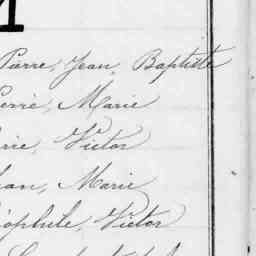 Pierre, Jean, Baptiste
Pierre, Marie
Marie, Victor
Jean, Marie
Théophile, Victor